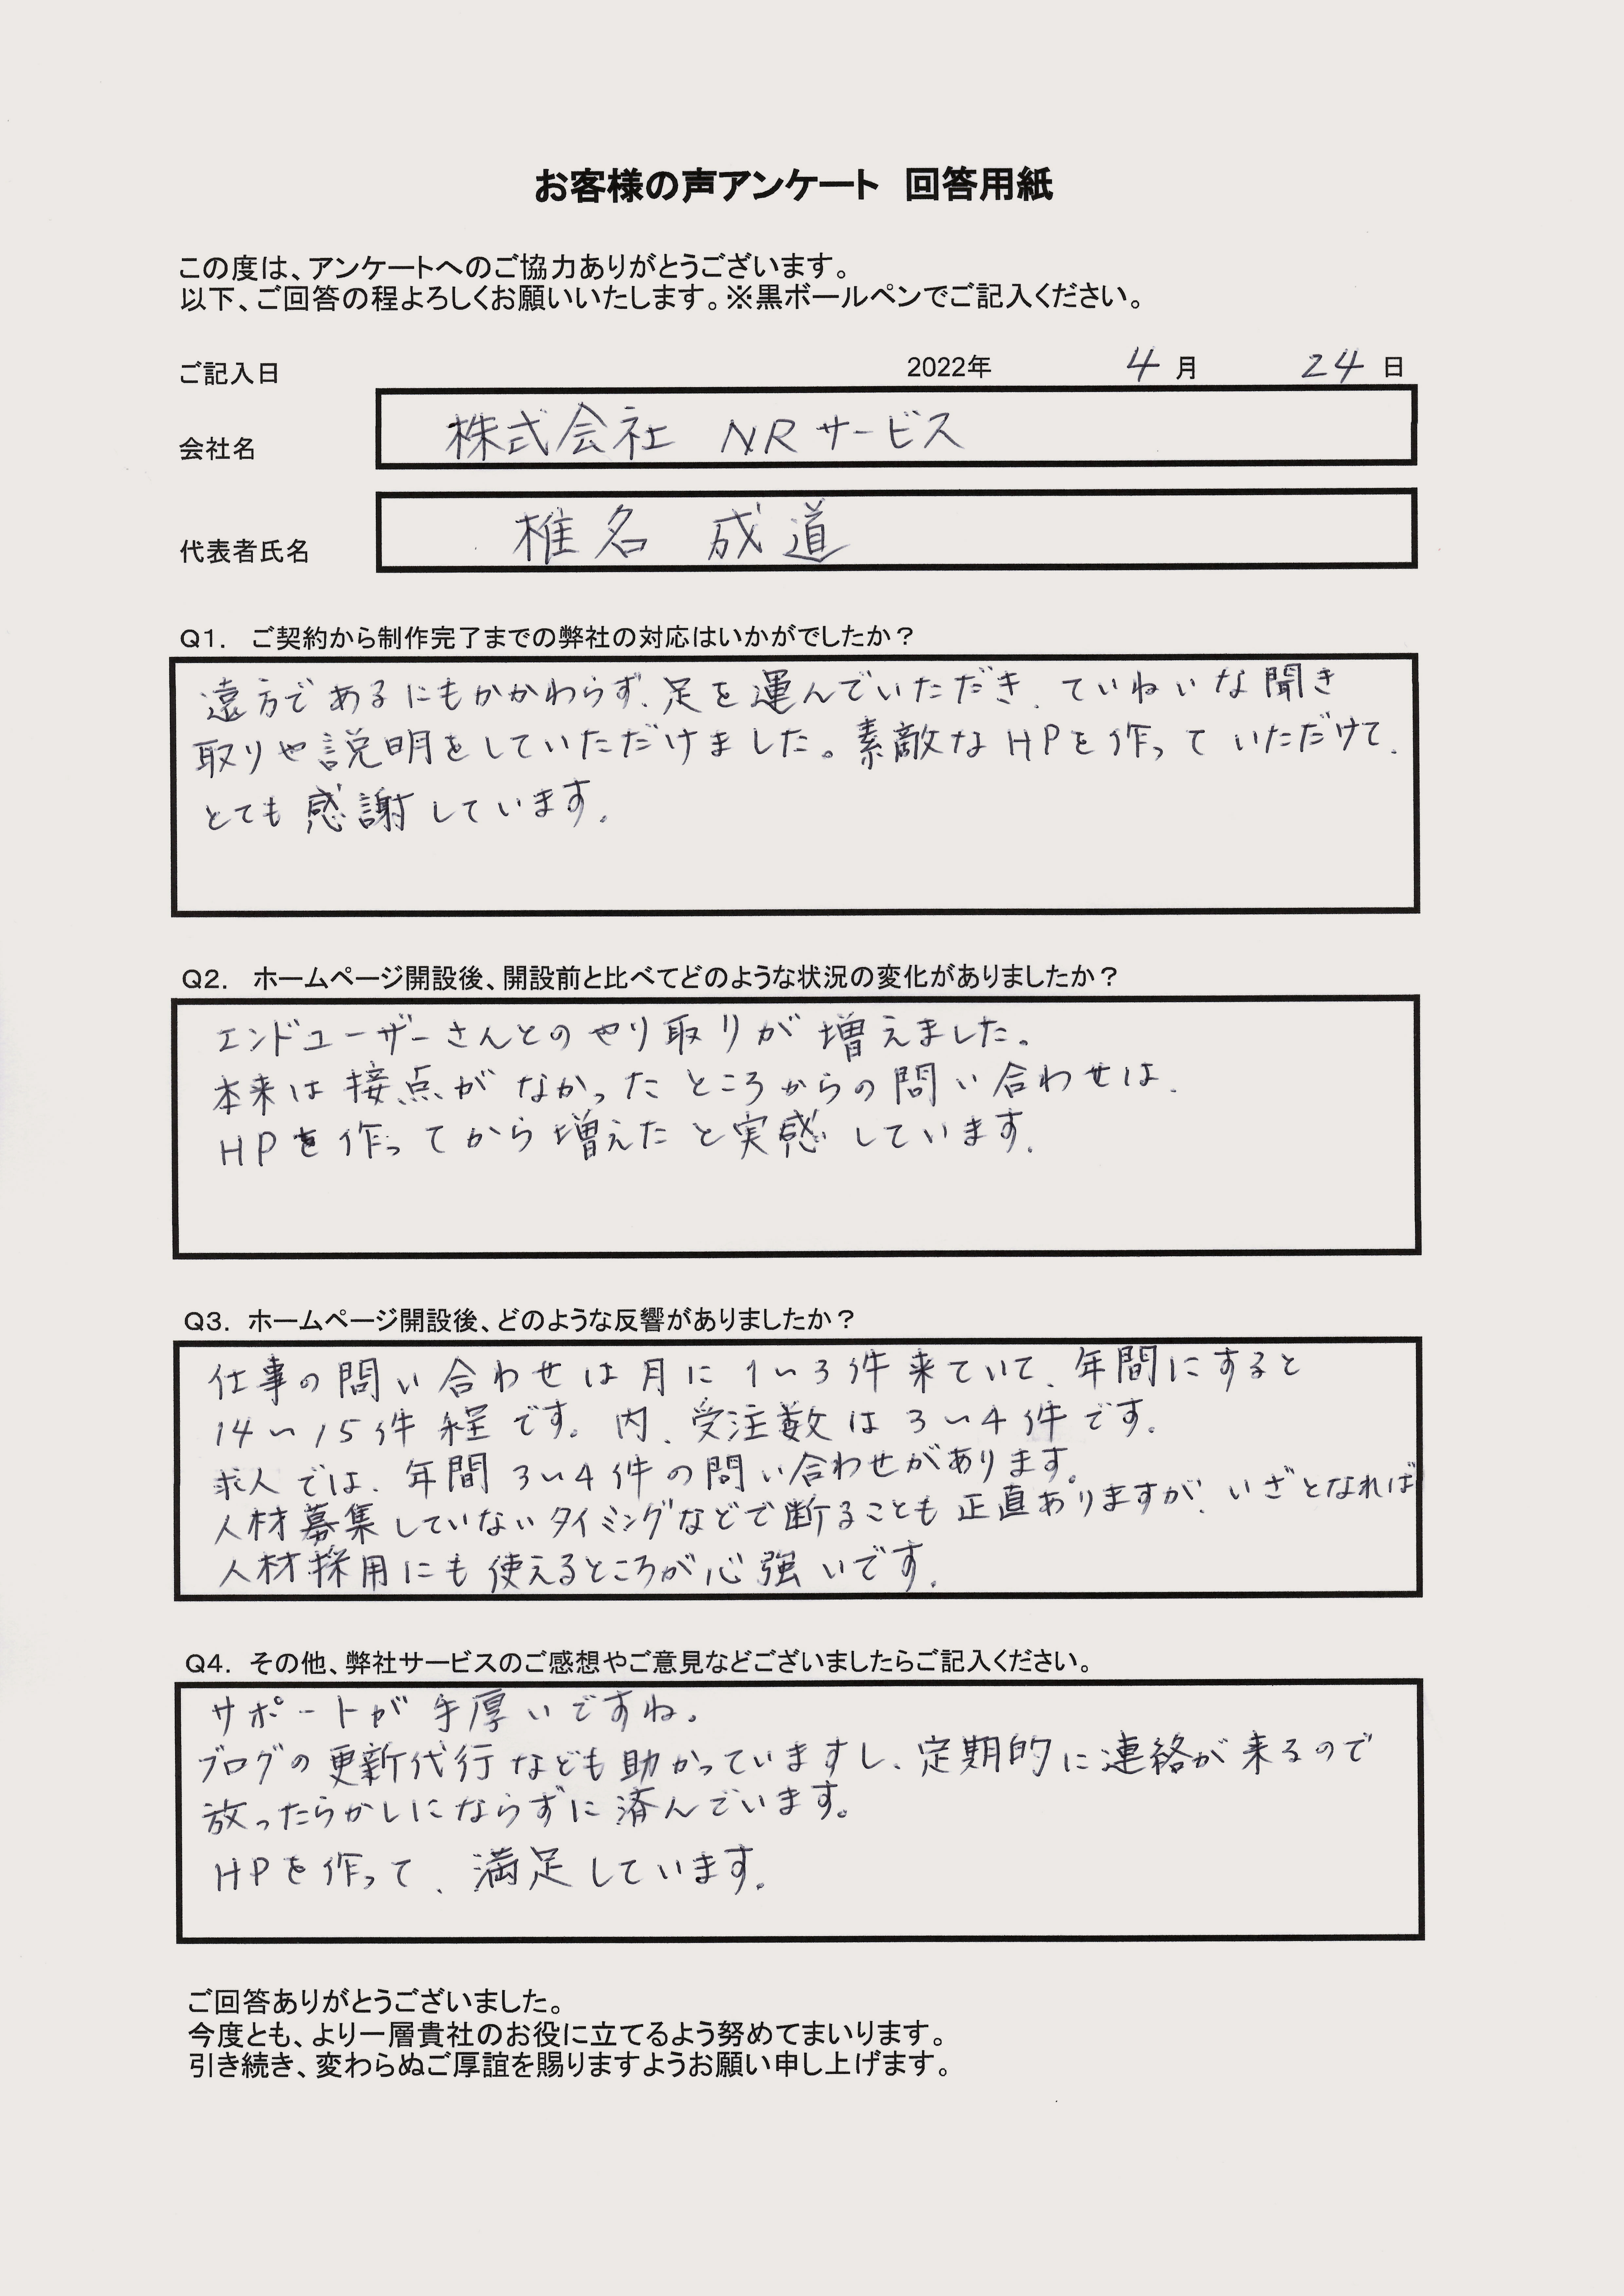 お客様の声アンケート 回答用紙
この度は、アンケートへのご協力ありがとうございます。
以下、ご回答の程よろしくお願いいたします。※黒ボールペンでご記入ください。
ご記入日 2022年 4月 24日
会社名 株式会社 NRサービス
代表者氏名 椎名 成道
Q1. ご契約から制作完了までの弊社の対応はいかがでしたか？
遠方であるにもかかわらず、足を運んでいただき、ていねいな聞き
取りや説明をしていただけました。素敵なHPを作っていただけて、
とても感謝しています。
Q2. ホームページ開設後、開設前と比べてどのような状況の変化がありましたか？
エンドユーザーさんとのやり取りが増えました。
本来は接点がなかったところからの問い合わせは、
HPを作ってから増えたと実感しています。
Q3. ホームページ開設後、どのような反響がありましたか？
仕事の問い合わせは月に1〜3件来ていて、年間にすると
14〜15件程です。内、受注数は3〜4件です。
求人では、年間3〜4件の問い合わせがあります。
人材募集していないタイミングなどで断ることも正直ありますが、いざとなれば
人材採用にも使えるところが心強いです。
Q4. その他、弊社サービスのご感想やご意見などございましたらご記入ください。
サポートが手厚いですね。
ブログの更新代行なども助かっていますし、定期的に連絡が来るので
放ったらかしにならずに済んでいます。
HPを作って、満足しています。
ご回答ありがとうございました。
今度とも、より一層貴社のお役に立てるよう努めてまいります。
引き続き、変わらぬご厚誼を賜りますようお願い申し上げます。